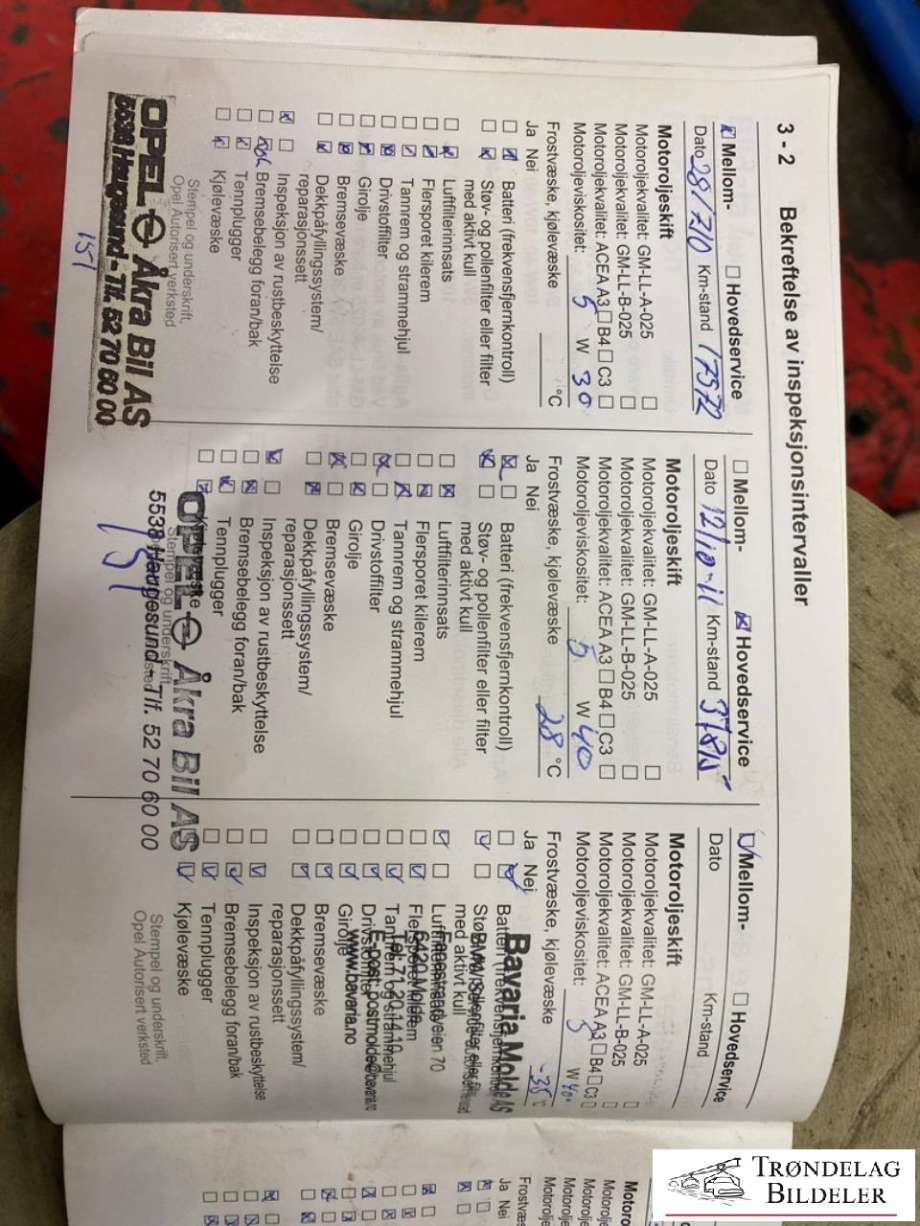 3 - 2 Bekreftelse av inspeksjonsintervaller
Mellom- Hovedservice
Dato 28/7 10 Km-stand 17572
Motoroljeskift
Motoroljekvalitet: GM-LL-A-025
Motoroljekvalitet: GM-LL-B-025
Motoroljekvalitet: ACEA A3 B4 C3
Motoroljeviskositet: 5 W 30
Frostvæske, kjølevæske °C
Ja Nei
Batteri (frekvensfjernkontroll)
Støv- og pollenfilter eller filter
med aktivt kull
Luftfilterinnsats
Flersporet kilerem
Tannrem og strammehjul
Drivstoffilter
Girolje
Bremsevæske
Dekkpåfyllingssystem/
reparasjonssett
Inspeksjon av rustbeskyttelse
Bremsebelegg foran/bak
Tennplugger
Kjølevæske
Stempel og underskrift,
Opel Autorisert verksted
OPEL Åkra Bil AS
5538 Haugesund - Tlf. 52 70 60 00
151
Mellom- Hovedservice
Dato 12/10-11 Km-stand 37815
Motoroljeskift
Motoroljekvalitet: GM-LL-A-025
Motoroljekvalitet: GM-LL-B-025
Motoroljekvalitet: ACEA A3 B4 C3
Motoroljeviskositet: 5 W 40
Frostvæske, kjølevæske 28 °C
Ja Nei
Batteri (frekvensfjernkontroll)
Støv- og pollenfilter eller filter
med aktivt kull
Luftfilterinnsats
Flersporet kilerem
Tannrem og strammehjul
Drivstoffilter
Girolje
Bremsevæske
Dekkpåfyllingssystem/
reparasjonssett
Inspeksjon av rustbeskyttelse
Bremsebelegg foran/bak
Tennplugger
Kjølevæske
OPEL Åkra Bil AS
Stempel og underskrift,
5538 Haugesund - Tlf. 52 70 60 00
151
Mellom- Hovedservice
Dato Km-stand
Motoroljeskift
Motoroljekvalitet: GM-LL-A-025
Motoroljekvalitet: GM-LL-B-025
Motoroljekvalitet: ACEA A3 B4 C3
Motoroljeviskositet: 5 W 40
Frostvæske, kjølevæske -35 °C
Ja Nei
Batteri
Bavaria Molde AS
med aktivt kull
Fannestrandveien 70
6420 Molde
Tannrem og strammehjul
Tel: 71 20 14 10
E-post: postmolde@bavaria.no
Girolje
www.bavaria.no
Bremsevæske
Dekkpåfyllingssystem/
reparasjonssett
Inspeksjon av rustbeskyttelse
Bremsebelegg foran/bak
Tennplugger
Kjølevæske
Stempel og underskrift,
Opel Autorisert verksted
Ja Nei
TRØNDELAG
BILDELER